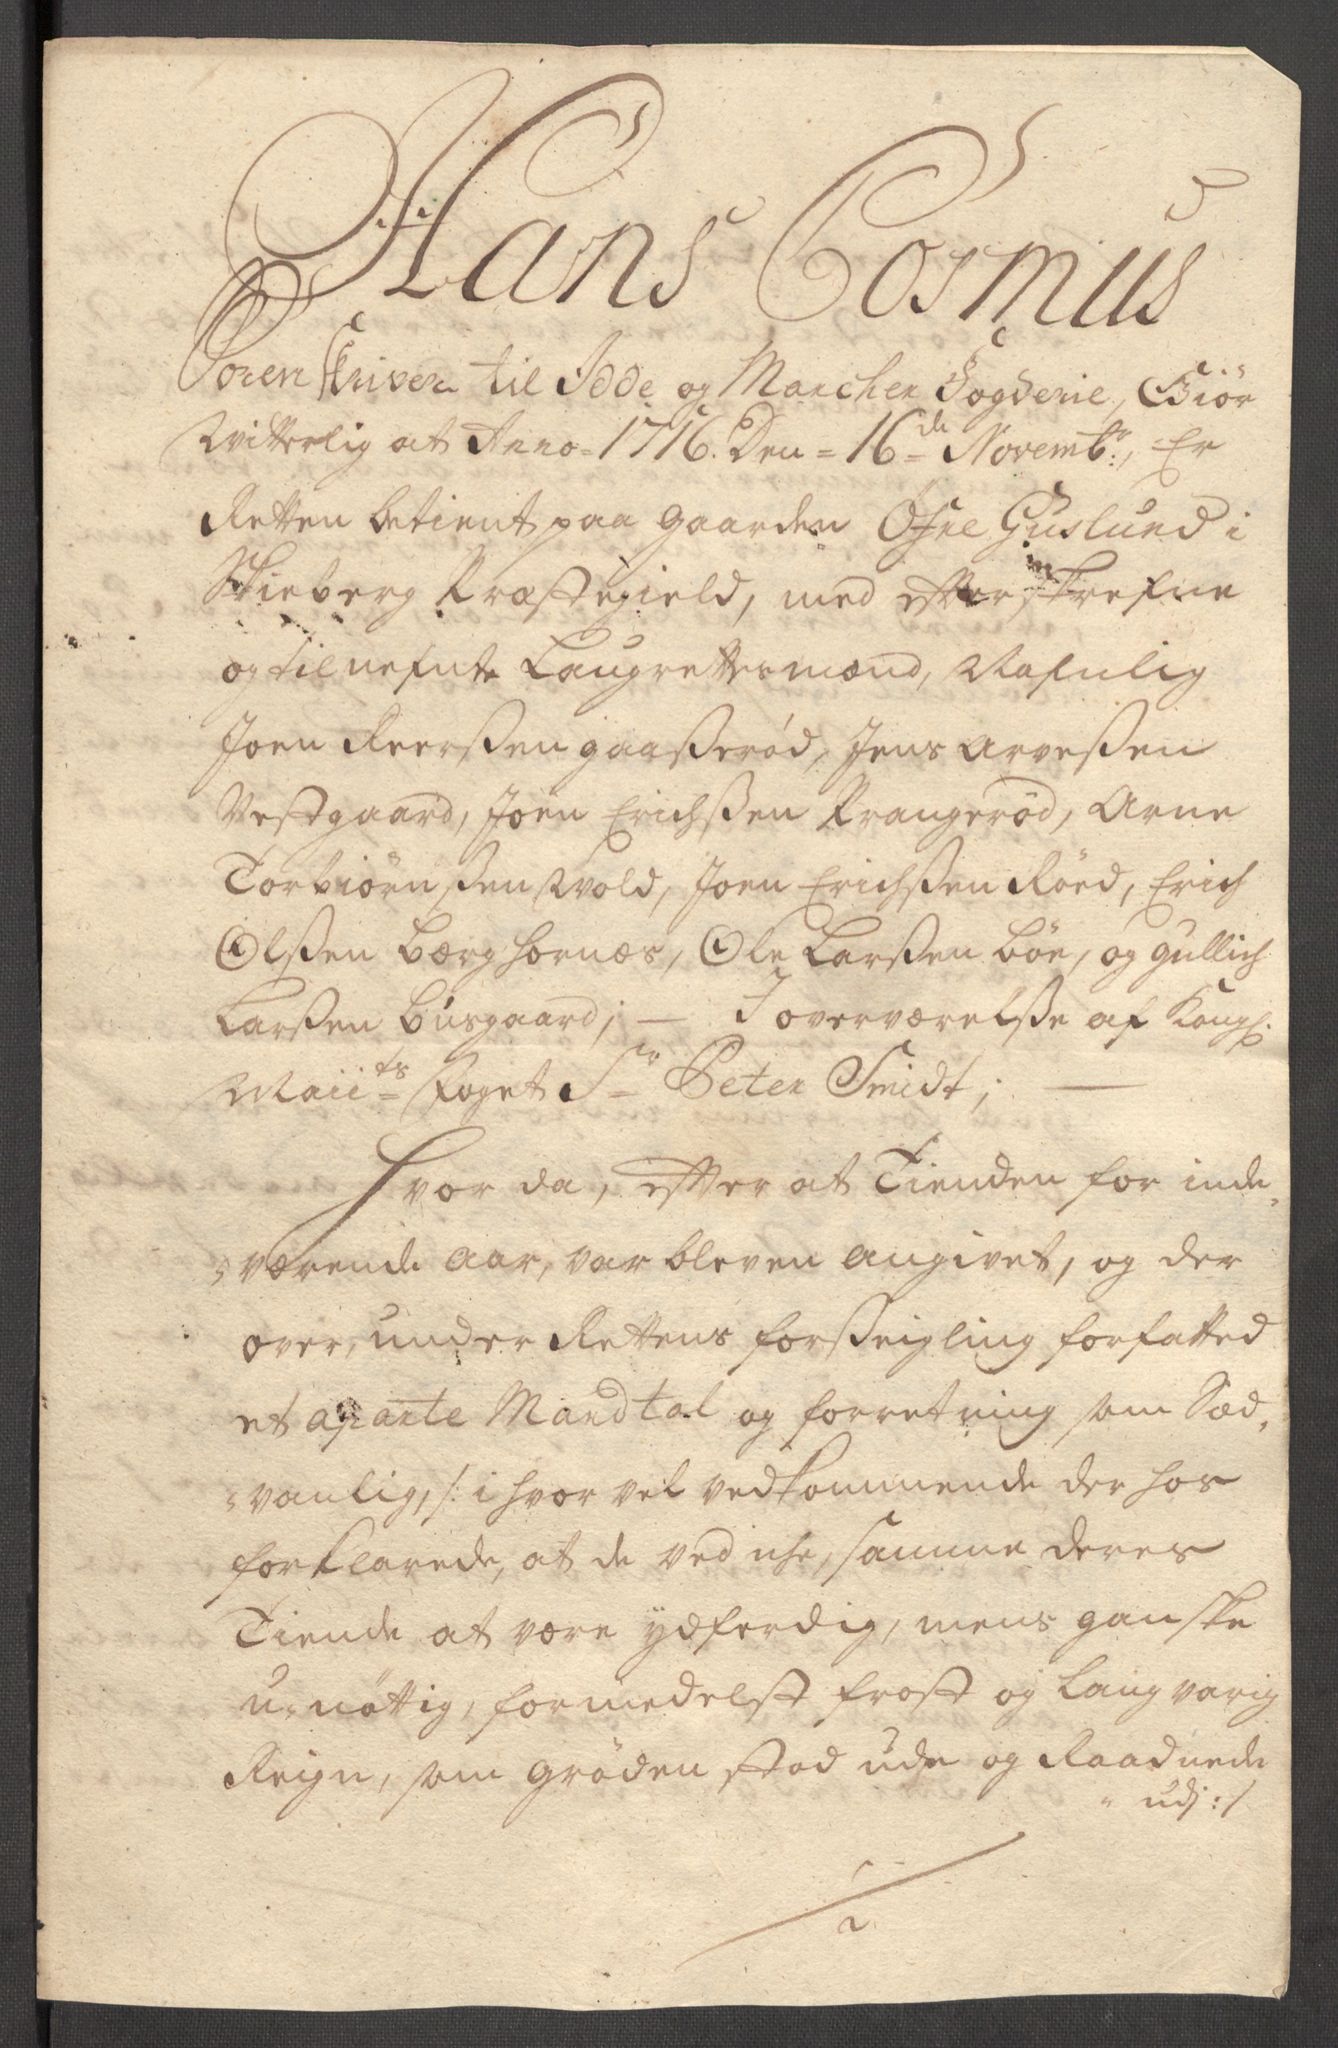 Hans Cosmus
Soren Skriver til Idde og Marcher Fogderie, Giör
Witterlig at Anno 1716. Den = 16de Novembr:, Er
Retten betient paa gaarden Öfre Guslund i
Skieberg Præstegield, med efterskrefne
og tilnefnte Laugrettesmænd, Nafnlig
Joen Reerßen gaaßeröd, Jens Arveßen
Vestgaard, Joen Erichßen Krangeröd, Arne
Torbiörnßen Wold, Joen Erichßen Röed, Erich
Olßen Berghornæs, Ole Larßen böe, og Gullich
Larßen busgaard; — I overværelße af Kongl:
Maiits Foget Sr Peter Smidt; —
Hvor da, efter at Tienden for inde-
værende aar, var bleven angivet, og der
over, under Rettens forßeigling forfatted
et aparte Mandtal og forretning som Sæd-
vanlig, /: i hvor vel vedkommende der hos
forklarede, at de ved , samme deres
Tiende at være ydferdig, mens ganske
u-nöttig, formedelst frost og langvarig
Reign, som gröden stod ude og Raadnede
udj :/